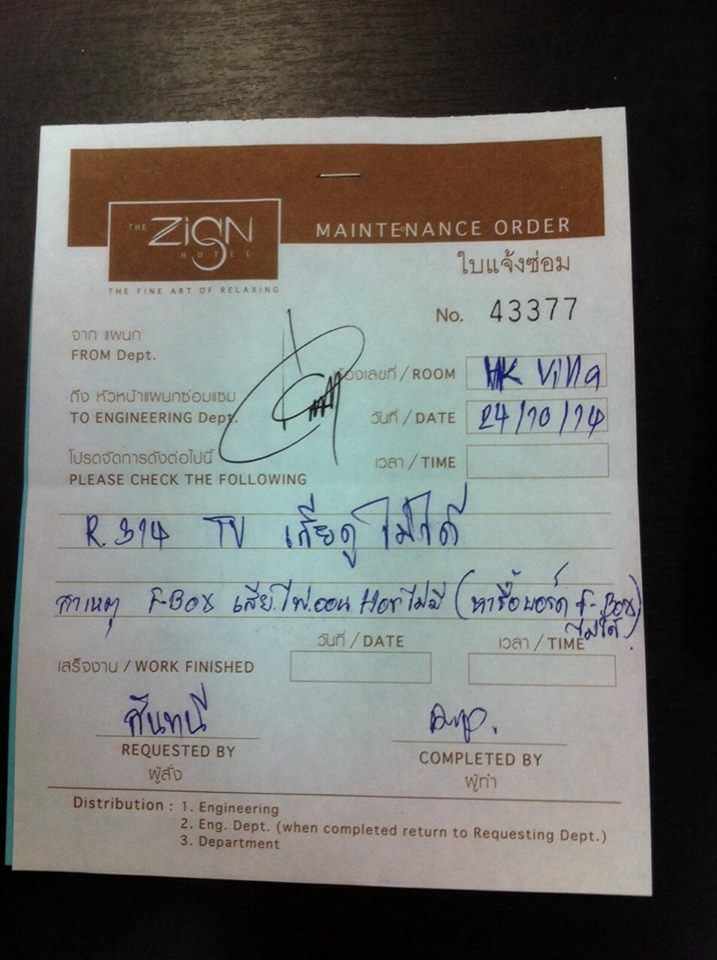 THE ZIGN HOTEL
THE FINE ART OF RELAXING
MAINTENANCE ORDER
ใบแจ้งซ่อม
No. 43377
จาก แผนก
FROM Dept.
ห้องเลขที่ / ROOM HK Villa
ถึง หัวหน้าแผนกซ่อมแซม
TO ENGINEERING Dept.
วันที่ / DATE 24/10/14
โปรดจัดการดังต่อไปนี้
PLEASE CHECK THE FOLLOWING
เวลา / TIME
R.314 TV เสียดูไม่ได้
สาเหตุ F-Box เสีย.ไฟ.ออน Hor ไม่มี (หาซื้อบอร์ด F-Box
ไม่ได้)
วันที่ / DATE
เวลา / TIME
เสร็จงาน / WORK FINISHED
REQUESTED BY
ผู้สั่ง
COMPLETED BY
ผู้ทำ
Distribution : 1. Engineering
2. Eng. Dept. (when completed return to Requesting Dept.)
3. Department